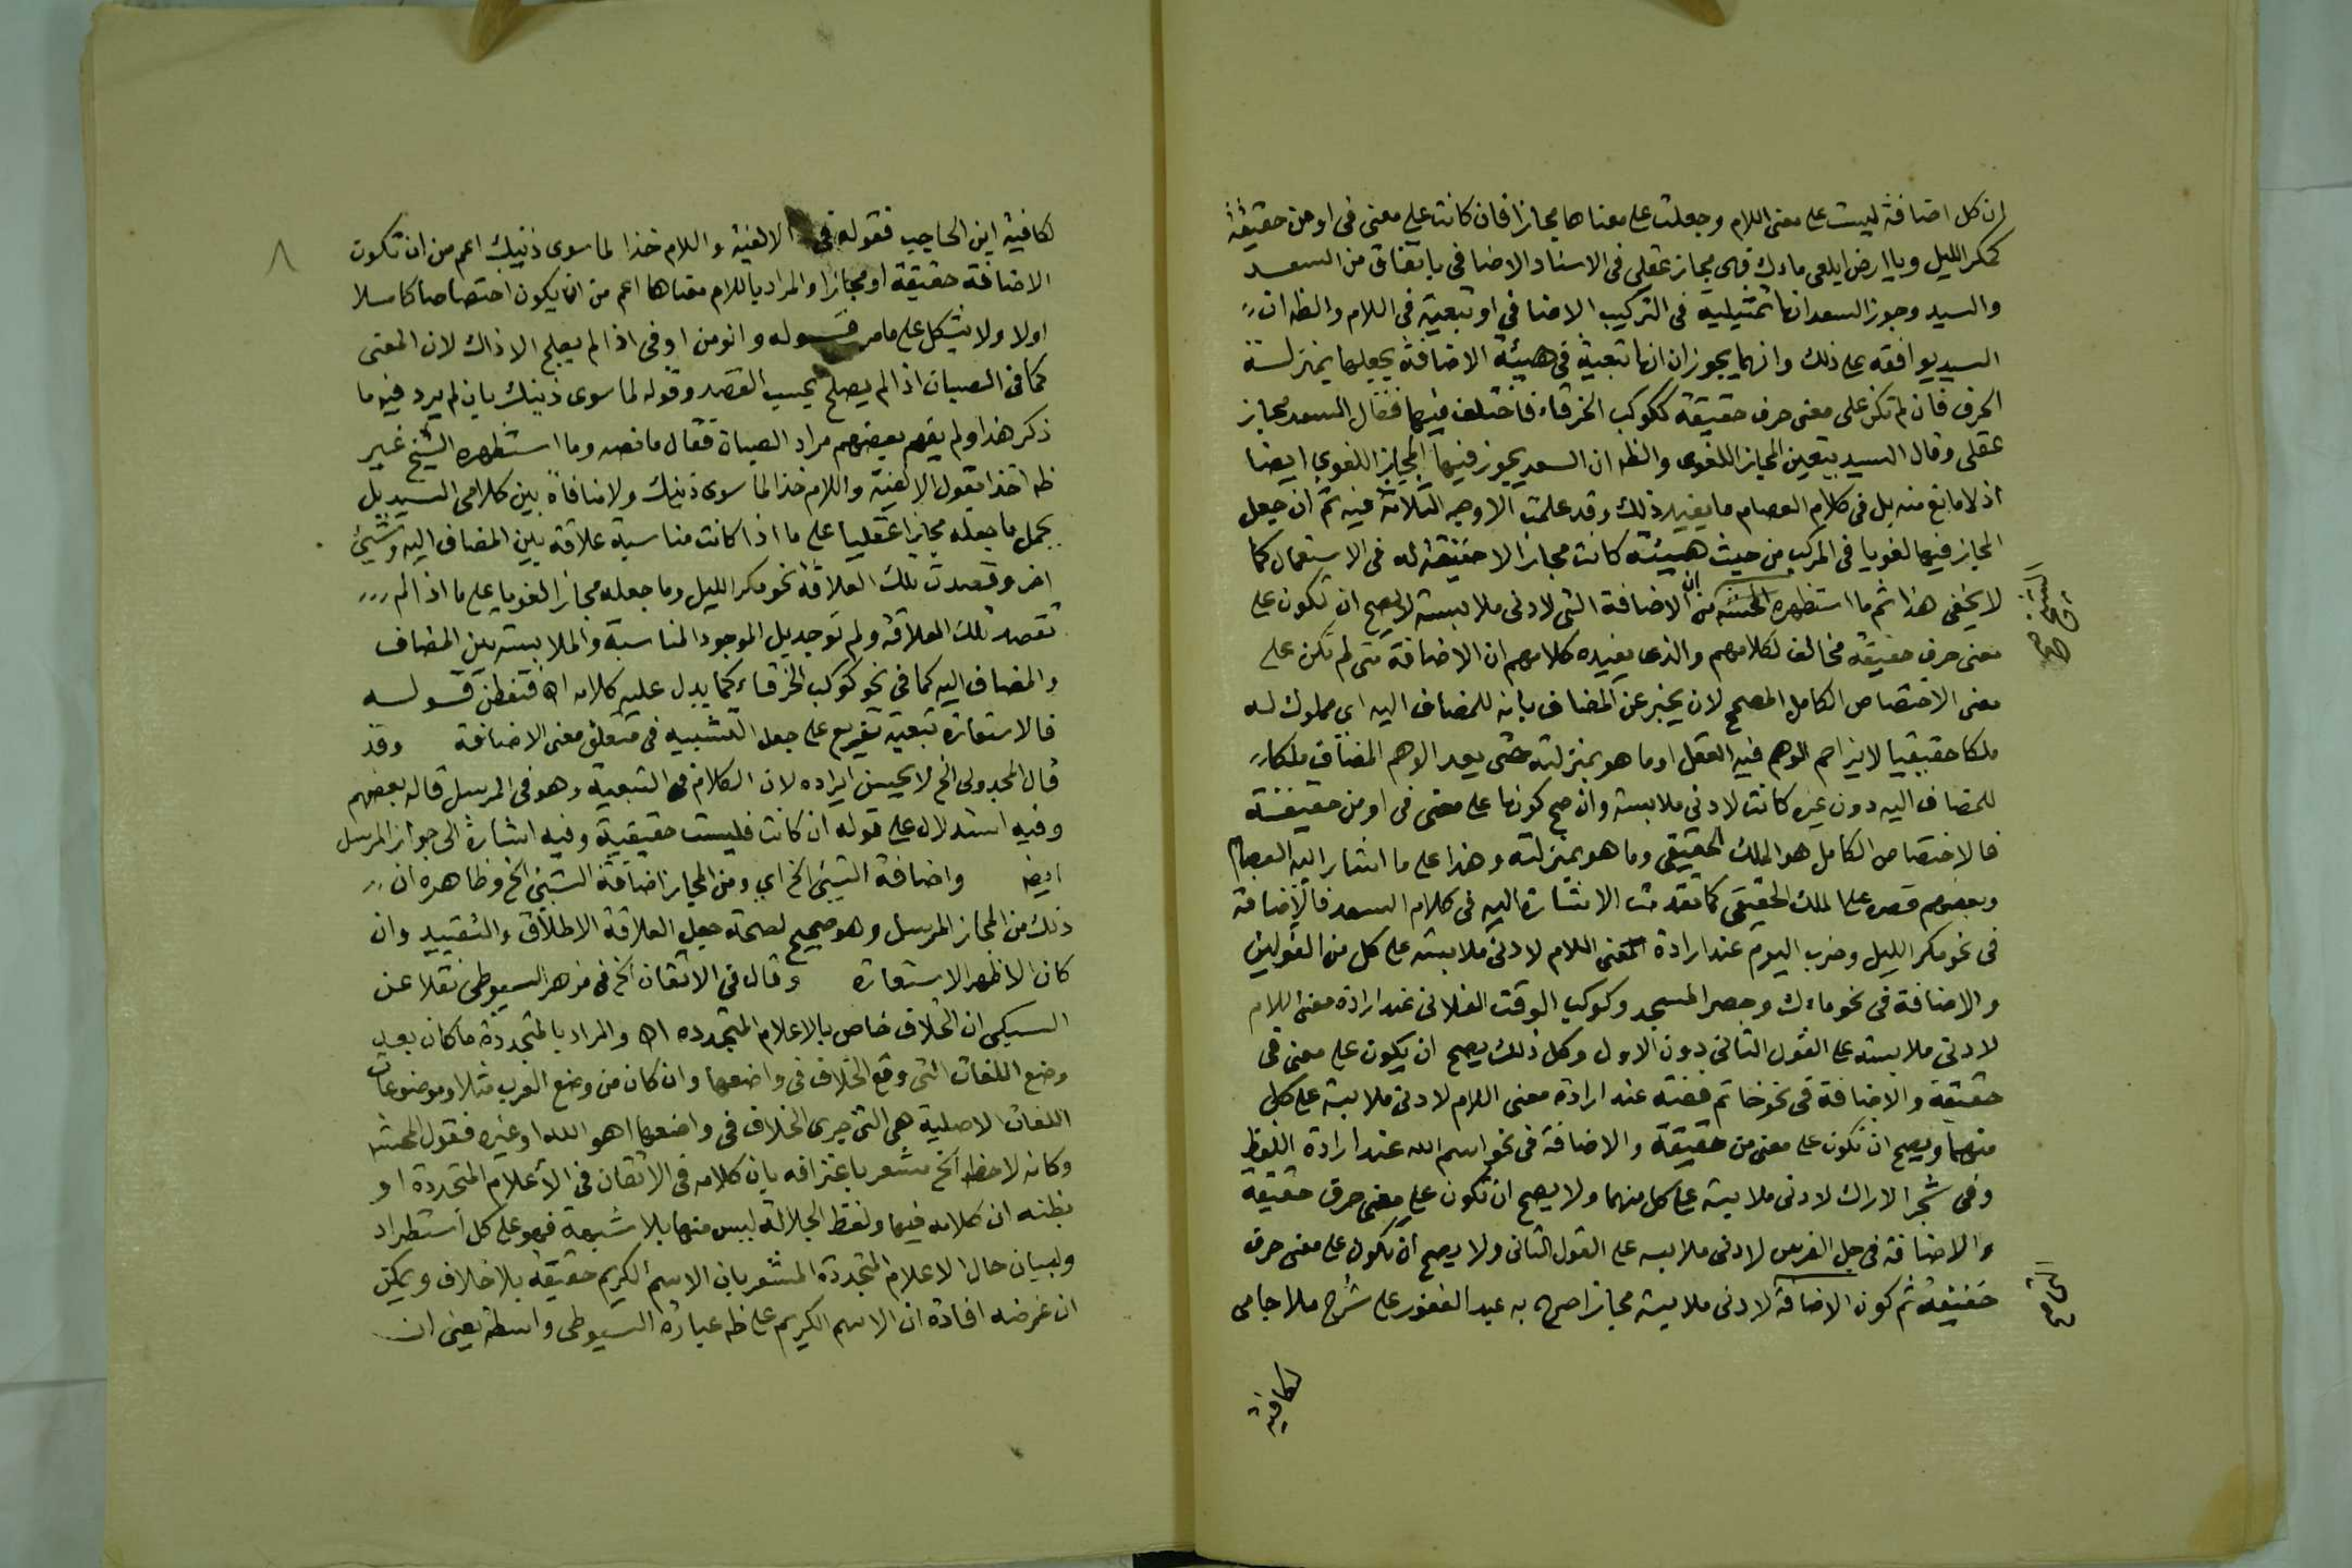 ان كل اضافة ليست على معنى اللام وجعلت على معناها مجازا فان كانت على معنى فى او من حقيقة
كمكر الليل ويا ارض ابلعى ماءك فهى مجاز عقلى فى الاسناد الاضافى باتفاق من السعد
والسيد وجوز السعد انها تمثيلية فى التركيب الاضافي او تبعية فى اللام والظه ان
السيد يوافقه على ذلك وانهما يجوزان انها تبعية فى هيئة الاضافة بجعلها بمنزلة
الحرف فان لم تكن على معنى حرف حقيقة ككوكب الخرقاء فاختلف فيها فقال السعد مجاز
عقلى وقال السيد بتعين المجاز اللغوى والظه ان السعد يجوز فيها المجاز اللغوى ايضا
اذ لا مانع منه بل فى كلام العصام ما يفيد ذلك وقد علمت الاوجه الثلاثة فيه ثم ان جعل
المجاز فيها لغويا فى المركب من حيث هيئته كانت مجازا لا حقيقة له فى الاستعمال كما
لا يخفى هذا ثم ما استظهره المحشى من ان الاضافة التى لادنى ملابسة لا يصح ان تكون على
معنى حرف حقيقة مخالف لكلامهم والذى يفيده كلامهم ان الاضافة متى لم تكن على
معنى الاختصاص الكامل المصحح لان يخبر عن المضاف بانه للمضاف اليه اى مملوك له
ملكا حقيقيا لا يزاحم الوهم فيه العقل او ما هو بمنزلته حتى يعد الوهم المضاف ملكا
للمضاف اليه دون غيره كانت لادنى ملابسة وان صح كونها على معنى فى او من حقيقة
فالاختصاص الكامل هو الملك الحقيقى وما هو بمنزلته وهذا على ما اشار اليه العصام
وبعضهم قصره على الملك الحقيقى كما تقدمت الاشارة اليه فى كلام السعد فالاضافة
فى نحو مكر الليل وضرب اليوم عند ارادة معنى اللام لادنى ملابسة على كل من القولين
والاضافة فى نحو ماءك وحصر المسجد وكوكب الوقت الفلانى عند ارادة معنى اللام
لادنى ملابسة على القول الثانى دون الاول وكل ذلك يصح ان يكون على معنى فى
حقيقة والاضافة فى نحو خاتم فضة عند ارادة معنى اللام لادنى ملابسة على كل
منهما ويصح ان تكون على معنى من حقيقة والاضافة فى نحو اسم الله عند ارادة اللفظ
وفى شجر الاراك لادنى ملابسة على كل منهما ولا يصح ان تكون على معنى حرف حقيقة
والاضافة فى جل الفرس لادنى ملابسة على القول الثانى ولا يصح ان تكون على معنى حرف
حقيقة ثم كون الاضافة لادنى ملابسة مجازا صرح به عبد الغفور على شرح ملا جامى
لكافية
لكافية ابن الحاجب فقوله فى الالفية واللام خذا لما سوى ذينك اعم من ان تكون
الاضافة حقيقة او مجازا والمراد باللام معناها اعم من ان يكون اختصاصا كاملا
اولا ولا يشكل على ما مر قوله وانو من او فى اذا لم يصلح الا ذاك لان المعنى
كما فى الصبان اذا لم يصلح بحسب القصد وقوله لما سوى ذينك بان لم يرد فيه ما
ذكر هذا ولم يفهم بعضهم مراد الصبان فقال ما نصه وما استظهره الشيخ غير
ظه اخذا بقول الالفية واللام خذا لما سوى ذينك ولا منافاة بين كلامى السيد بل
يحمل ما جعله مجازا عقليا على ما اذا كانت مناسبة علاقة بين المضاف اليه وشيئ
اخر وقصدت تلك العلاقة نحو مكر الليل وما جعله مجازا لغويا على ما اذا لم
تقصد تلك العلاقة ولم توجد بل الموجود المناسبة والملابسة بين المضاف
والمضاف اليه كما فى نحو كوكب الخرقاء كما يدل عليه كلامه اه فتفطن قوله
فالاستعارة تبعية تفريع على جعل التشبيه فى متعلق معنى الاضافة وقد
قال المجدولى الخ لا يحسن ايراده لان الكلام فى التبعية وهو فى المرسل قاله بعضهم
وفيه استدلال على قوله ان كانت فليست حقيقية وفيه اشارة الى جواز المرسل
ايضا واضافة الشيئ الخ اي ومن المجاز اضافة الشيئ الخ وظاهره ان
ذلك من المجاز المرسل وهو صحيح لصحة جعل العلاقة الاطلاق والتقييد وان
كان الاظهر الاستعارة وقال فى الاتقان الخ فى مزهر السيوطى نقلا عن
السبكى ان الخلاف خاص بالاعلام المتجدده اه والمراد بالمتجددة ما كان بعد
وضع اللغات التى وقع الخلاف فى واضعها وان كان من وضع العرب مثلا وموضوعات
اللغات الاصلية هى التى جرى الخلاف فى واضعها اهو الله او غيره فقول المحشى
وكانه لاحظ الخ مشعر باعترافه بان كلامه فى الاتقان فى الاعلام المتجددة او
بظنه ان كلامه فيها ولفظ الجلالة ليس منها بلا شبهة فهو على كل استطراد
ولبيان حال الاعلام المتجددة المشعر بان الاسم الكريم حقيقة بلا خلاف ويمكن
ان غرضه افادة ان الاسم الكريم على ظه عبارة السيوطى واسطة يعنى ان